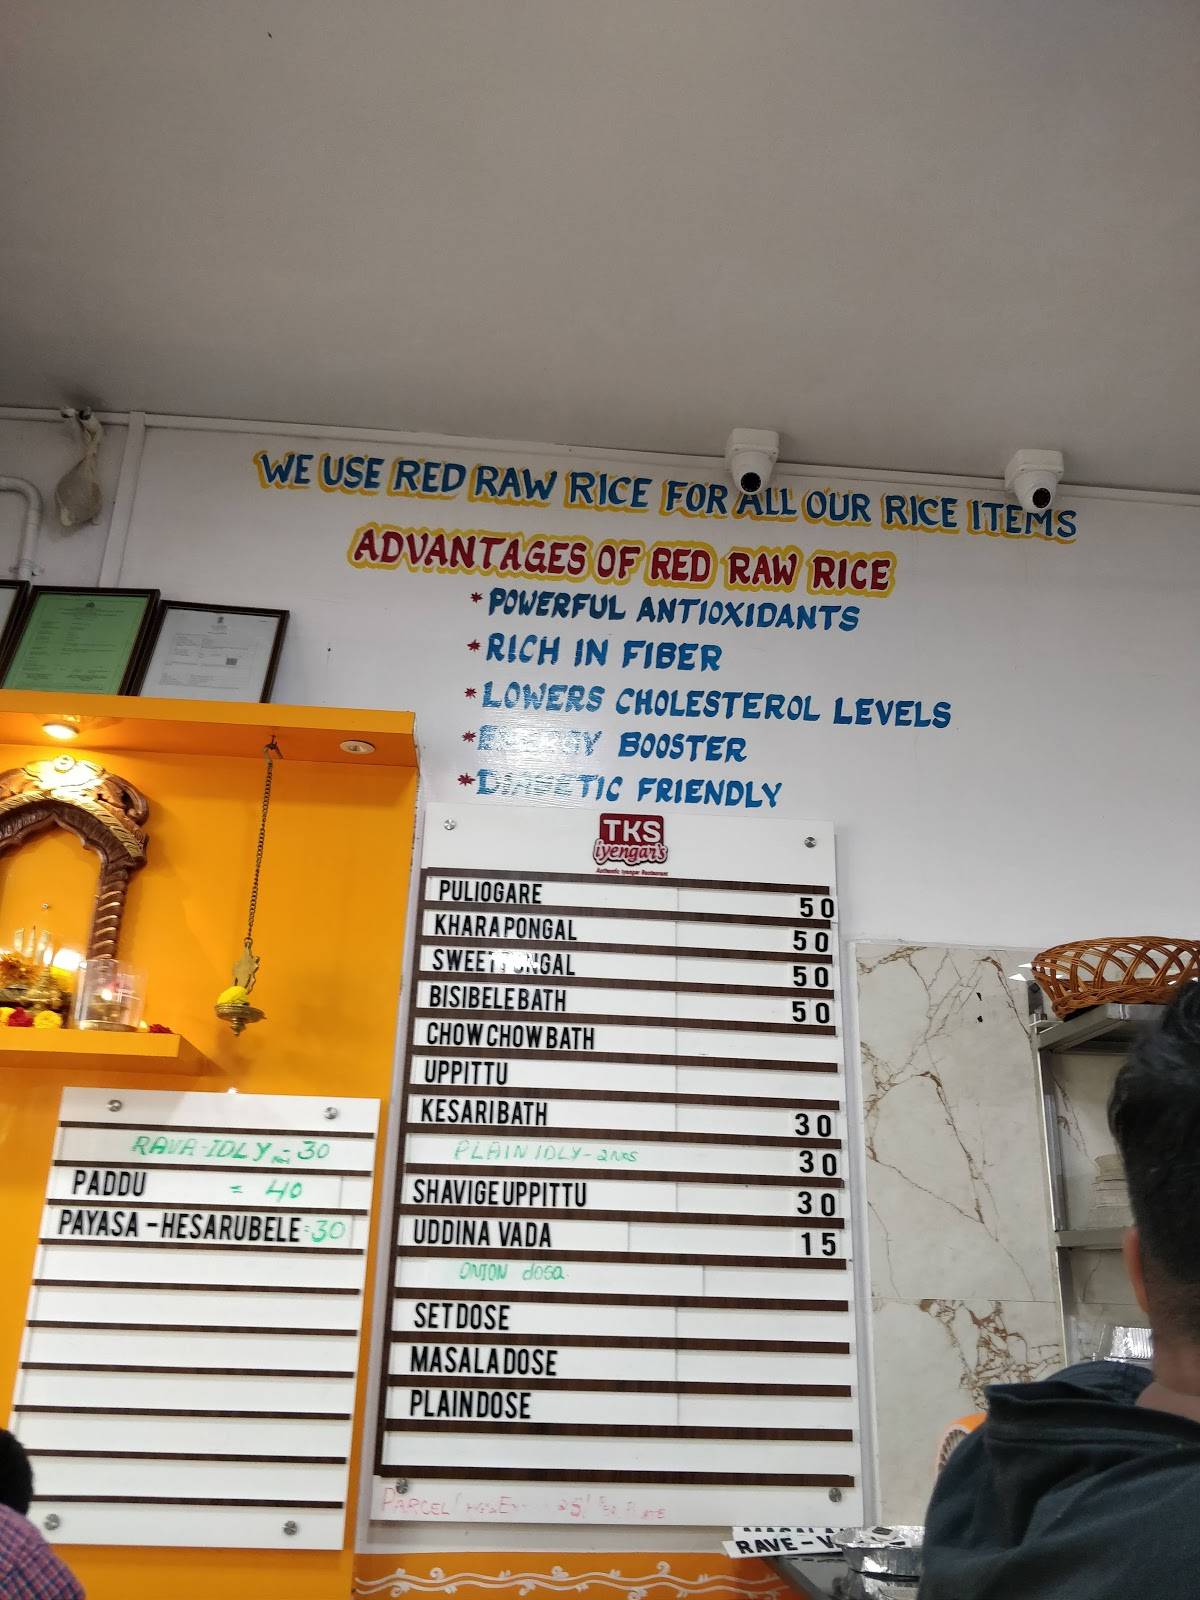 WE USE RED RAW RICE FOR ALL OUR RICE ITEMS
ADVANTAGES OF RED RAW RICE
* POWERFUL ANTIOXIDANTS
* RICH IN FIBER
* LOWERS CHOLESTEROL LEVELS
* ENERGY BOOSTER
* DIABETIC FRIENDLY
TKS
iyengar's
Authentic Iyengar Restaurant
PULIOGARE 50
KHARA PONGAL 50
SWEET PONGAL 50
BISIBELE BATH 50
CHOW CHOW BATH
UPPITTU
KESARI BATH 30
PLAIN IDLY - 2NOS 30
SHAVIGE UPPITTU 30
UDDINA VADA 15
ONION dosa
SET DOSE
MASALA DOSE
PLAIN DOSE
PARCEL
RAVA-IDLY - 30
PADDU = 40
PAYASA - HESARUBELE = 30
RAVE -